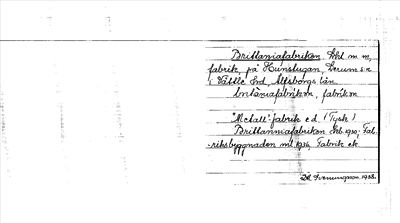 Brittaniafabriken, lht m m,
fabrik, på Hunstugan, Lerums n
(Vättle hd, Älfsborgs län
britaniafabrikøn, fabrikøn
"Metall"-fabrik e.d. (Tysk)
Brittanniafabriken Feb. 1930; Fab-
riksbyggnaden ml 1936, Fabrik ek
Svenungsson 1938.